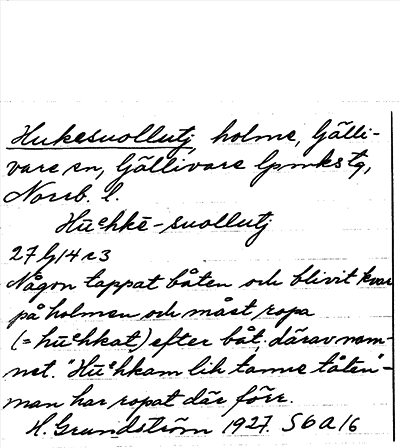 Hukesuollutj, holme, Gälli-
vare sn, Gällivare lpmks tg,
Norrb. l.
Hūᵉhkē-suollutj
27 G 14 c 3
Någon tappat båten och blivit kvar
på holmen och måst ropa
(=hūᵉhkat) efter båt, därav nam-
net. "Hūᵉhkam lih tanne tåten"-
man har ropat där förr.
H. Grundström 1927. S 6 a 16